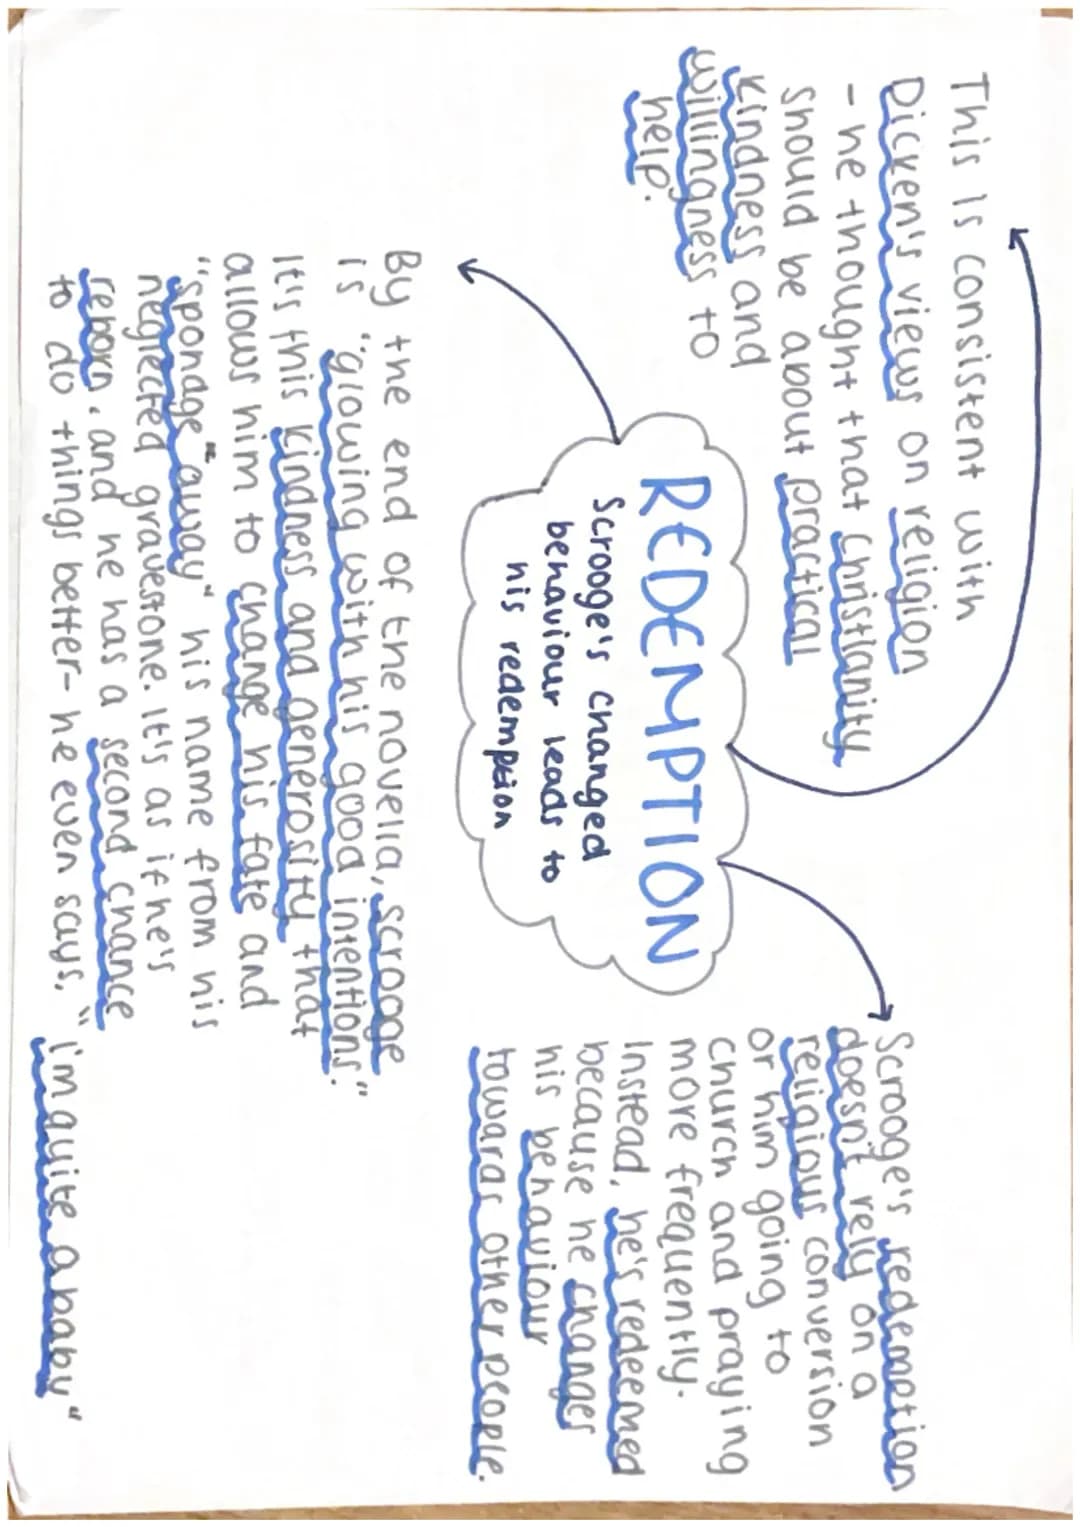 This is consistent with
Dicken's views on religion
- he thought that Christianity
should be about practical
kindness and
willingness to
help.
REDEMPTION
Scrooge's changed
behaviour leads to
his redemption
Scrooge's redemption
doesn't rely on a
religious conversion
or him going to
church and praying
more frequently.
Instead, he's redeemed
because he changes
his behaviour
towards other people.
By the end of the novella, scrooge
is "glowing with his good intentions."
It's this kindness and generosity that
allows him to change his fate and
"spondge away" his name from his
neglected gravestone. It's as if he's
reborn, and he has a second chance
to do things better- he even says, "i'm quite a baby"